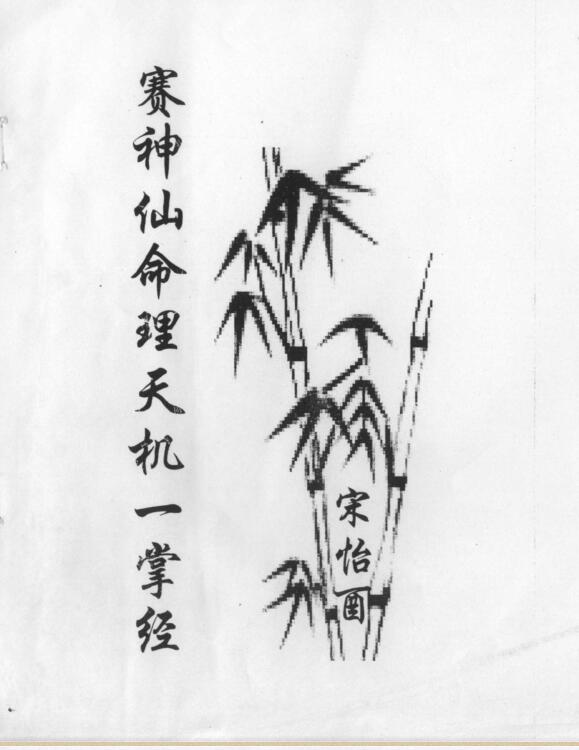 赛神仙命理天机一掌经
宋怡酉